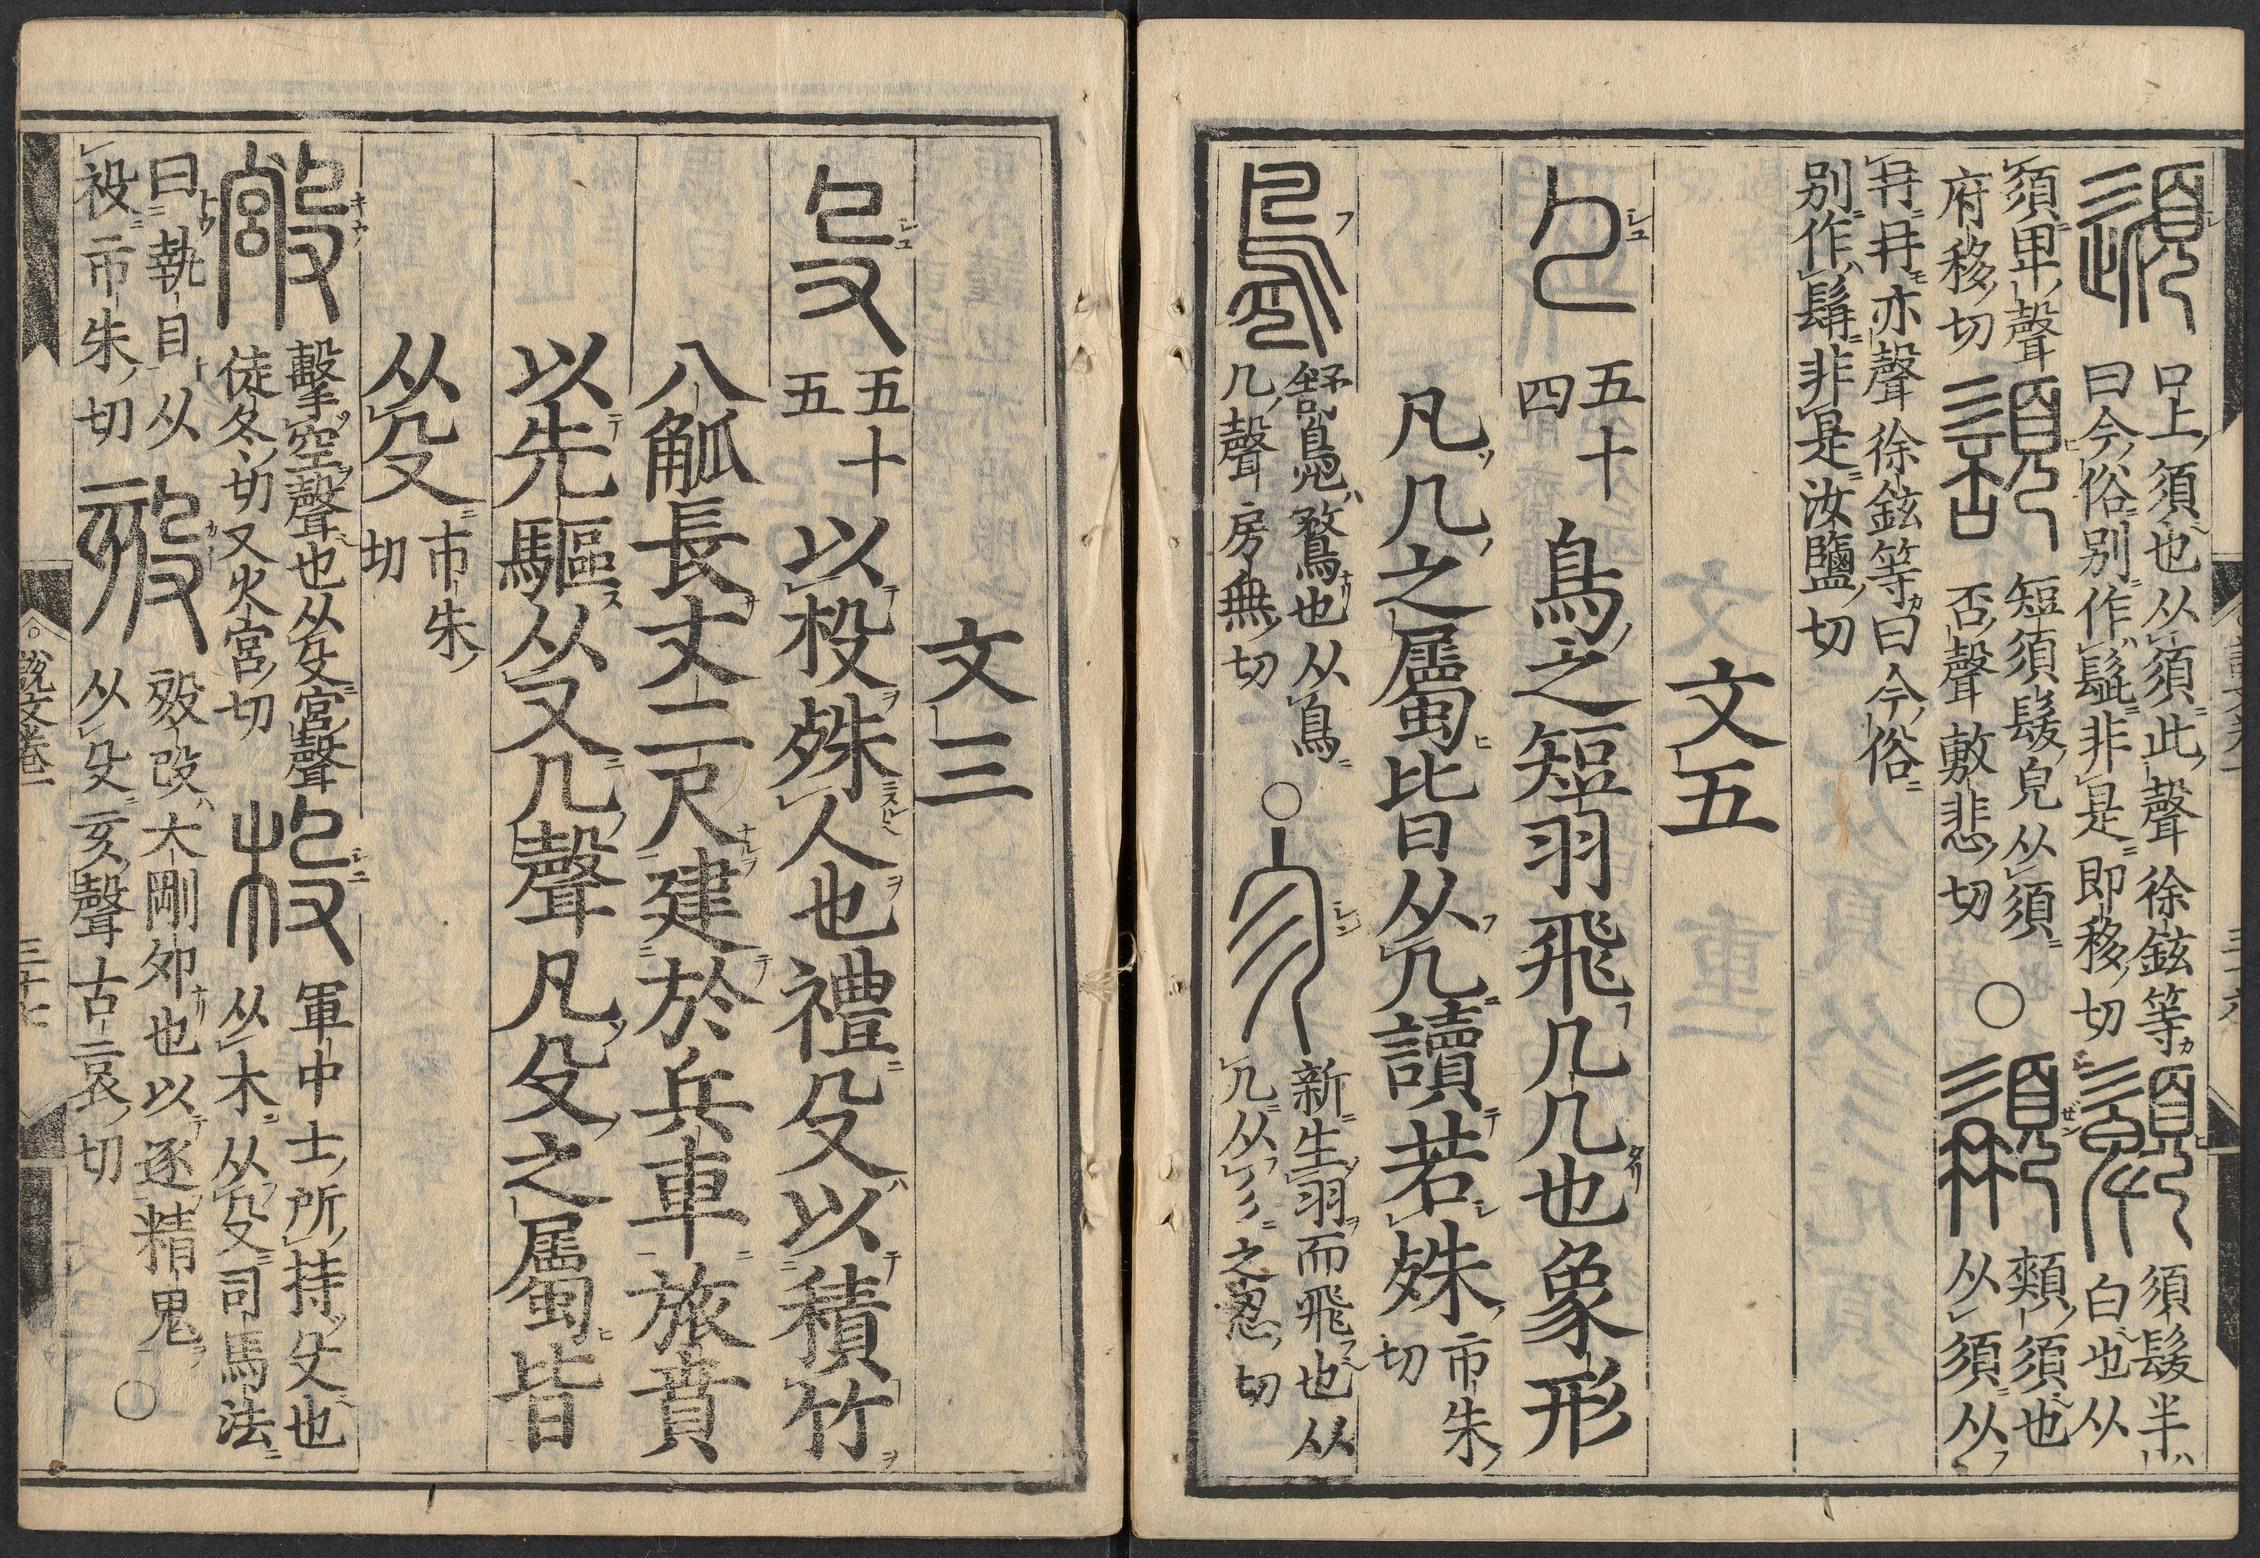 頾 口上須也从須此聲徐鉉等
曰今俗别作髭非是即移切
𩔹 須髮半
白也从
須卑聲
府移切
䫠 短須髮皃从須
否聲敷悲切 〇
𩑺 頰須也
从須从
冄冄亦聲徐鉉等曰今俗
别作髥非是汝鹽切
文五
𠘧 五十四 鳥之短羽飛几几也象形
凡几之屬皆从几讀若殊 市朱切
鳧 舒鳧鶩也从鳥
几聲房無切 〇
㐱 新生羽而飛也从
几从彡之忍切
文三
殳 五十五 以杸殊人也禮殳以積竹
八觚長丈二尺建於兵車旅賁
以先驅从又几聲凡殳之屬皆
从殳 市朱切
𣪯 擊空聲也从殳宮聲
徒冬切又火宮切
杸 軍中士所持殳也
从木从殳司馬法
曰執目从
祋市朱切
㱾 㱾改大剛卯也以逐精鬼
从殳亥聲古哀切 〇
說文卷一 三十七